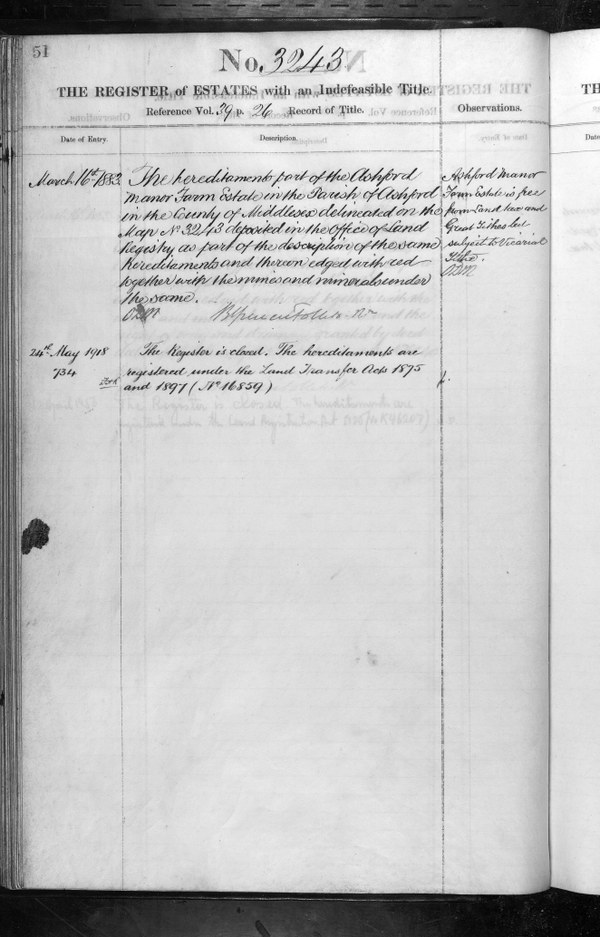 51
No. 3243
THE REGISTER of ESTATES with an Indefeasible Title.
Reference Vol. 39 p. 26 Record of Title.
Observations.
Date of Entry.
Description.
March 16th 1883.
The hereditaments part of the Ashford
Manor Farm Estate in the Parish of Ashford
in the County of Middlesex delineated on the
Map No 3243 deposited in the Office of Land
Registry as part of the description of the same
hereditaments and thereon edged with red
together with the mines and minerals under
the same.
Ashford Manor
Farm Estate is free
from Land tax and
Great Tithes but
subject to Vicarial
Tithe.
24th May 1918
734
The Register is closed. The hereditaments are
registered under the Land Transfer Acts 1875
and 1897 (No 16859)
TH
Date